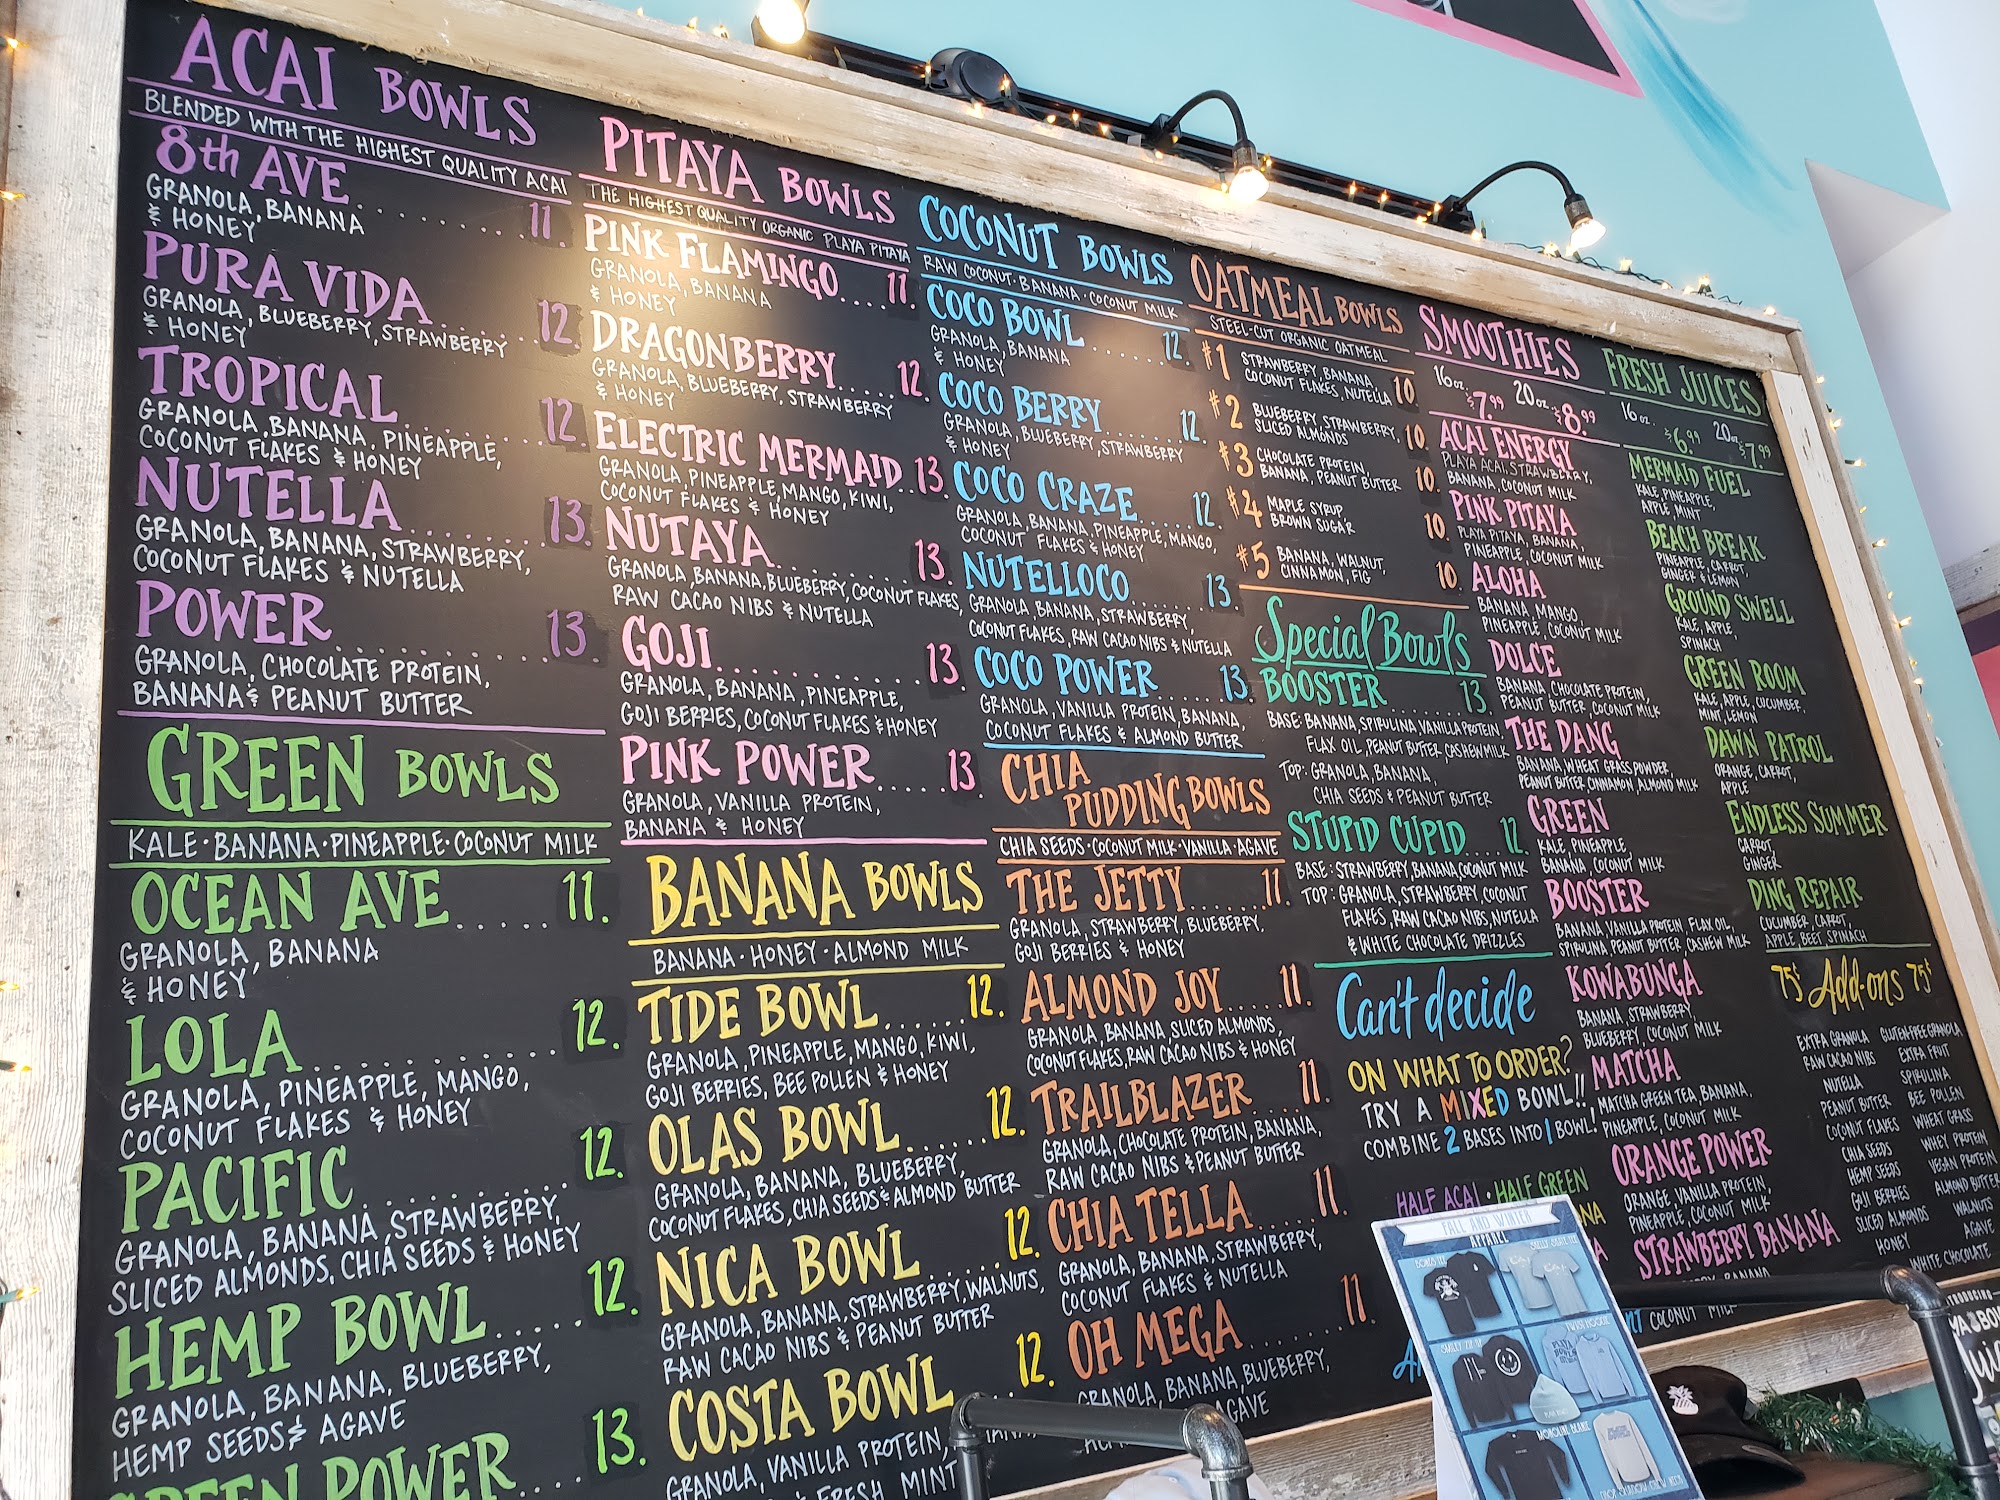 ACAI BOWLS
BLENDED WITH THE HIGHEST QUALITY ACAI
8th AVE........11.
GRANOLA, BANANA
& HONEY
PURA VIDA.....12.
GRANOLA, BLUEBERRY, STRAWBERRY
& HONEY
TROPICAL........12.
GRANOLA, BANANA, PINEAPPLE,
COCONUT FLAKES & HONEY
NUTELLA........13.
GRANOLA, BANANA, STRAWBERRY,
COCONUT FLAKES & NUTELLA
POWER............13.
GRANOLA, CHOCOLATE PROTEIN,
BANANA & PEANUT BUTTER
GREEN BOWLS
KALE · BANANA · PINEAPPLE · COCONUT MILK
OCEAN AVE.....11.
GRANOLA, BANANA
& HONEY
LOLA...........12.
GRANOLA, PINEAPPLE, MANGO,
COCONUT FLAKES & HONEY
PACIFIC.........12.
GRANOLA, BANANA, STRAWBERRY,
SLICED ALMONDS, CHIA SEEDS & HONEY
HEMP BOWL.....12.
GRANOLA, BANANA, BLUEBERRY,
HEMP SEEDS & AGAVE
GREEN POWER...13.
PITAYA BOWLS
THE HIGHEST QUALITY ORGANIC PLAYA PITAYA
PINK FLAMINGO....11.
GRANOLA, BANANA
& HONEY
DRAGONBERRY....12.
GRANOLA, BLUEBERRY, STRAWBERRY
& HONEY
ELECTRIC MERMAID..13.
GRANOLA, PINEAPPLE, MANGO, KIWI,
COCONUT FLAKES & HONEY
NUTAYA..........13.
GRANOLA, BANANA, BLUEBERRY, COCONUT FLAKES,
RAW CACAO NIBS & NUTELLA
GOJI............13.
GRANOLA, BANANA, PINEAPPLE,
GOJI BERRIES, COCONUT FLAKES & HONEY
PINK POWER.....13.
GRANOLA, VANILLA PROTEIN,
BANANA & HONEY
BANANA BOWLS
BANANA · HONEY · ALMOND MILK
TIDE BOWL......12.
GRANOLA, PINEAPPLE, MANGO, KIWI,
GOJI BERRIES, BEE POLLEN & HONEY
OLAS BOWL......12.
GRANOLA, BANANA, BLUEBERRY,
COCONUT FLAKES, CHIA SEEDS & ALMOND BUTTER
NICA BOWL......12.
GRANOLA, BANANA, STRAWBERRY, WALNUTS,
RAW CACAO NIBS & PEANUT BUTTER
COSTA BOWL....12.
GRANOLA, VANILLA PROTEIN,
FRESH MINT
COCONUT BOWLS
RAW COCONUT · BANANA · COCONUT MILK
COCO BOWL........12.
GRANOLA, BANANA
& HONEY
COCO BERRY.......12.
GRANOLA, BLUEBERRY, STRAWBERRY
& HONEY
COCO CRAZE.....12.
GRANOLA, BANANA, PINEAPPLE, MANGO,
COCONUT FLAKES & HONEY
NUTELLOCO.......13.
GRANOLA, BANANA, STRAWBERRY,
COCONUT FLAKES, RAW CACAO NIBS & NUTELLA
COCO POWER......13.
GRANOLA, VANILLA PROTEIN, BANANA,
COCONUT FLAKES & ALMOND BUTTER
CHIA
PUDDING BOWLS
CHIA SEEDS · COCONUT MILK · VANILLA · AGAVE
THE JETTY.......11.
GRANOLA, STRAWBERRY, BLUEBERRY,
GOJI BERRIES & HONEY
ALMOND JOY.....11.
GRANOLA, BANANA, SLICED ALMONDS,
COCONUT FLAKES, RAW CACAO NIBS & HONEY
TRAILBLAZER.....11.
GRANOLA, CHOCOLATE PROTEIN, BANANA,
RAW CACAO NIBS & PEANUT BUTTER
CHIA TELLA......11.
GRANOLA, BANANA, STRAWBERRY,
COCONUT FLAKES & NUTELLA
OH MEGA........11.
GRANOLA, BANANA, BLUEBERRY,
AGAVE
OATMEAL BOWLS
STEEL-CUT ORGANIC OATMEAL
#1 STRAWBERRY, BANANA,
COCONUT FLAKES, NUTELLA 10.
#2 BLUEBERRY, STRAWBERRY,
SLICED ALMONDS 10.
#3 CHOCOLATE PROTEIN,
BANANA, PEANUT BUTTER 10.
#4 MAPLE SYRUP
BROWN SUGAR 10.
#5 BANANA, WALNUT,
CINNAMON, FIG 10.
Special Bowls
BOOSTER.......13
BASE: BANANA, SPIRULINA, VANILLA PROTEIN,
FLAX OIL, PEANUT BUTTER, CASHEW MILK
TOP: GRANOLA, BANANA,
CHIA SEEDS & PEANUT BUTTER
STUPID CUPID....12.
BASE: STRAWBERRY, BANANA, COCONUT MILK
TOP: GRANOLA, STRAWBERRY, COCONUT
FLAKES, RAW CACAO NIBS, NUTELLA
& WHITE CHOCOLATE DRIZZLES
Can't decide
ON WHAT TO ORDER?
TRY A MIXED BOWL!!
COMBINE 2 BASES INTO 1 BOWL!
HALF ACAI · HALF GREEN
SMOOTHIES
16oz. $7.99 20oz. $8.99
ACAI ENERGY
PLAYA ACAI, STRAWBERRY,
BANANA, COCONUT MILK
PINK PITAYA
PLAYA PITAYA, BANANA,
PINEAPPLE, COCONUT MILK
ALOHA
BANANA, MANGO,
PINEAPPLE, COCONUT MILK
DOLCE
BANANA, CHOCOLATE PROTEIN,
PEANUT BUTTER, COCONUT MILK
THE DANG
BANANA, WHEAT GRASS POWDER,
PEANUT BUTTER, CINNAMON, ALMOND MILK
GREEN
KALE, PINEAPPLE,
BANANA, COCONUT MILK
BOOSTER
BANANA, VANILLA PROTEIN, FLAX OIL,
SPIRULINA, PEANUT BUTTER, CASHEW MILK
KOWABUNGA
BANANA, STRAWBERRY,
BLUEBERRY, COCONUT MILK
MATCHA
MATCHA GREEN TEA, BANANA,
PINEAPPLE, COCONUT MILK
ORANGE POWER
ORANGE, VANILLA PROTEIN,
PINEAPPLE, COCONUT MILK
STRAWBERRY BANANA
COCONUT MILK
FRESH JUICES
16oz. $6.99 20oz. $7.99
MERMAID FUEL
KALE, PINEAPPLE,
APPLE, MINT
BEACH BREAK
PINEAPPLE, CARROT,
GINGER & LEMON
GROUND SWELL
KALE, APPLE,
SPINACH
GREEN ROOM
KALE, APPLE, CUCUMBER,
MINT, LEMON
DAWN PATROL
ORANGE, CARROT,
APPLE
ENDLESS SUMMER
CARROT,
GINGER
DING REPAIR
CUCUMBER, CARROT,
APPLE, BEET, SPINACH
75¢ Add-ons 75¢
EXTRA GRANOLA
RAW CACAO NIBS
NUTELLA
PEANUT BUTTER
COCONUT FLAKES
CHIA SEEDS
HEMP SEEDS
GOJI BERRIES
SLICED ALMONDS
HONEY
GLUTEN-FREE GRANOLA
EXTRA FRUIT
SPIRULINA
BEE POLLEN
WHEAT GRASS
WHEY PROTEIN
VEGAN PROTEIN
ALMOND BUTTER
WALNUTS
AGAVE
WHITE CHOCOLATE
FALL AND WINTER
APPAREL